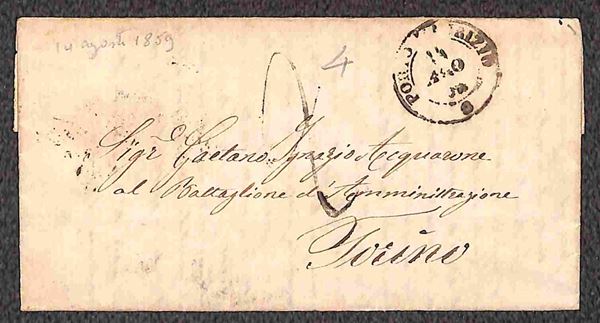 14 agosto 1859
4
PORTO MAURIZIO
14
AGO
59
2
Sig.r Gaetano Ignazio Acquarone
al Battaglione d'Amministrazione
Torino